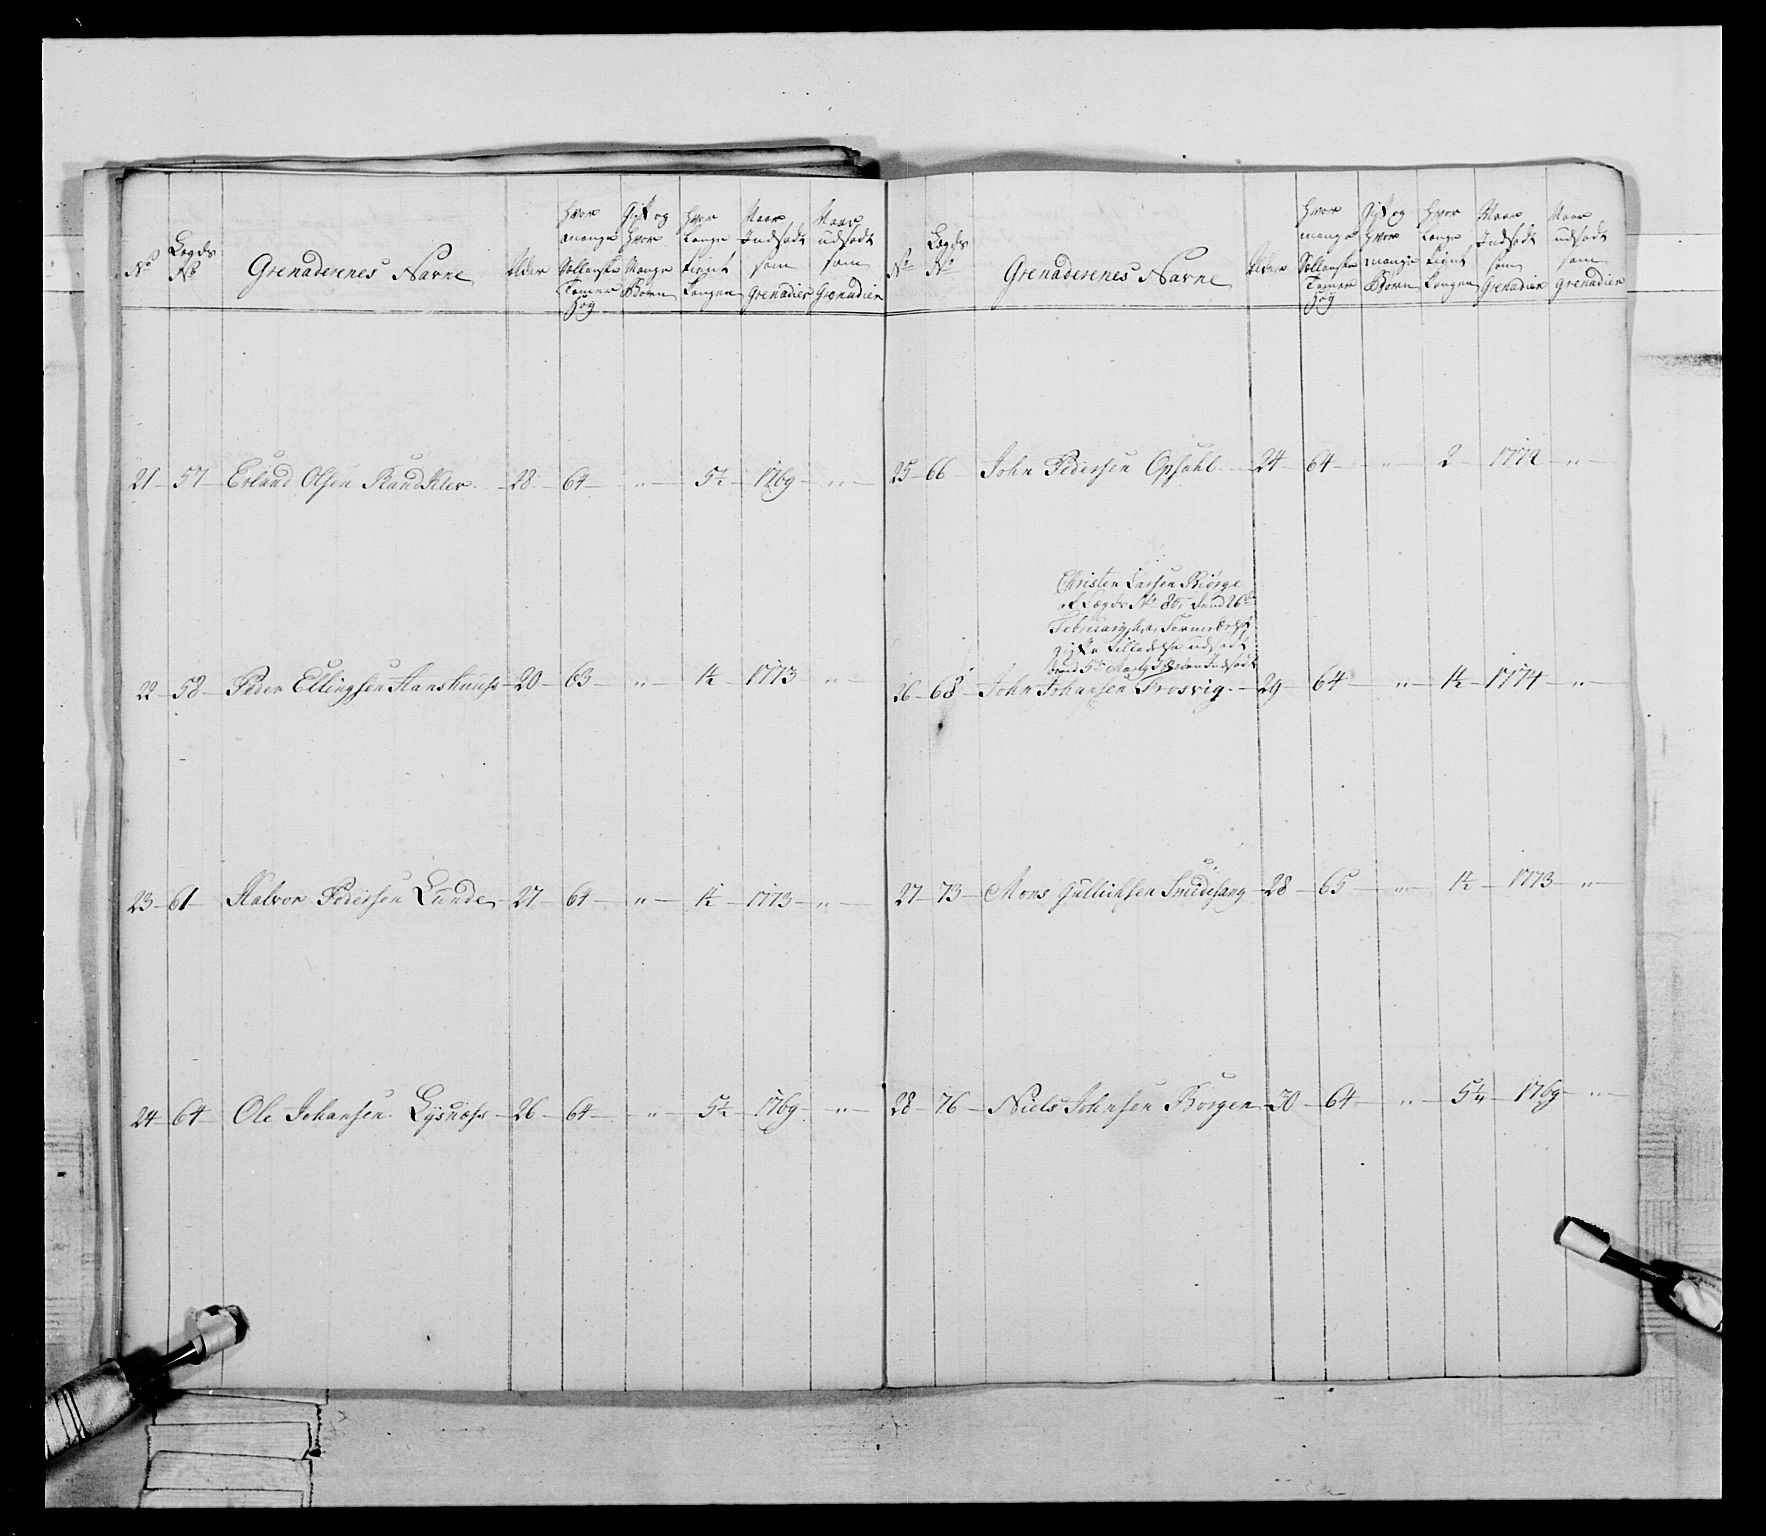 No
Lægds No
Grenaderenes Navne
Alder
Hvor mange Sollanske Tomer Høy
Gift og Hvor Mange Børn
Hvor Længe tient Kongen
Naar Indsadt som Grenadier
Naar udsadt som Grenadier
21 57 Erland Olsen 28 64 " 5½ 1769 "
22 58 Peder Ellingsen 20 63 " 1½ 1773 "
23 61 Halvor Pedersen Lunde 27 64 " 1½ 1773 "
24 64 Ole Johansen Lysnæss 26 64 " 5½ 1769 "
No
Lægds No
Grenaderenes Navne
Alder
Hvor mange Sollanske Tomer Høy
Gift og Hvor mange Børn
Hvor Længe tient Kongen
Naar Indsadt som Grenadier
Naar udsadt som Grenadier
25 66 John Pedersen Opsahl 24 64 " 2 1772 "
Christen Larsen Biørge
af Lægds No 80, dend 26de
February
udsadt
dend 5te Indsadt
26 68 John Johansen Trosvig 29 64 " 1½ 1774 "
27 73 Mons Gullichsen 28 65 " 1½ 1773 "
28 76 Niels Johnsen Borgen 30 64 " 5¼ 1769 "